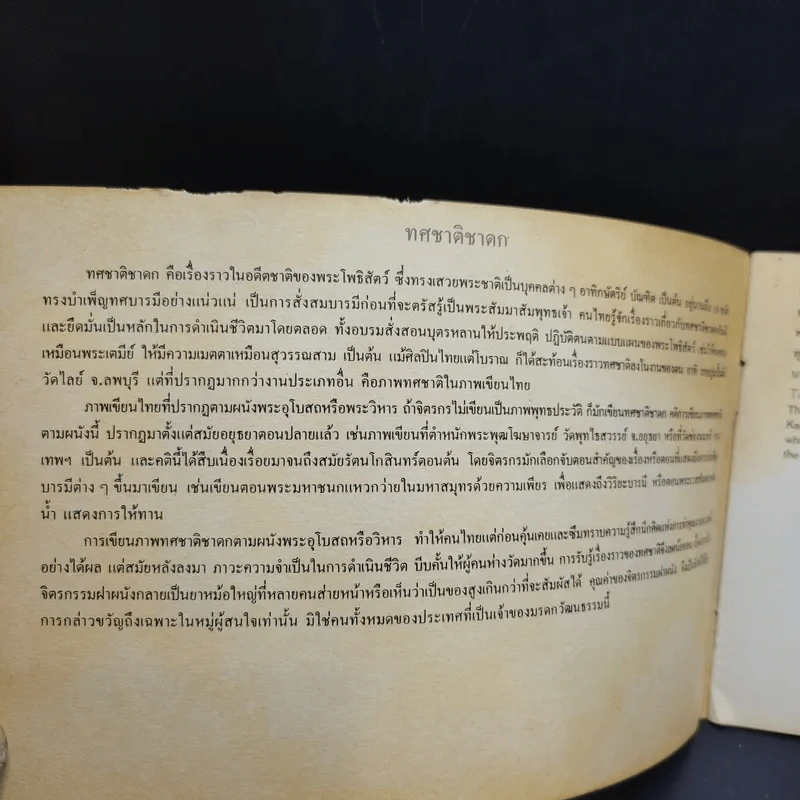 ทศชาติชาดก
ทศชาติชาดก คือเรื่องราวในอดีตชาติของพระโพธิสัตว์ ซึ่งทรงเสวยพระชาติเป็นบุคคลต่าง ๆ อาทิกษัตริย์ บัณฑิต เป็นต้น
ทรงบำเพ็ญทศบารมีอย่างแน่วแน่ เป็นการสั่งสมบารมีก่อนที่จะตรัสรู้เป็นพระสัมมาสัมพุทธเจ้า คนไทยรู้จักเรื่องราวเกี่ยวกับทศชาติชาดกกันดี
และยึดมั่นเป็นหลักในการดำเนินชีวิตมาโดยตลอด ทั้งอบรมสั่งสอนบุตรหลานให้ประพฤติ ปฏิบัติตามแบบแผนของพระโพธิสัตว์
เหมือนพระเตมีย์ ให้มีความเมตตาเหมือนสุวรรณสาม เป็นต้น แม้ศิลปินไทยแต่โบราณ ก็ได้สะท้อนเรื่องราวทศชาติลงในงานของตน อาทิ
วัดไลย์ จ.ลพบุรี แต่ที่ปรากฏมากกว่างานประเภทอื่น คือภาพทศชาติในภาพเขียนไทย
ภาพเขียนไทยที่ปรากฏตามผนังพระอุโบสถหรือพระวิหาร ถ้าจิตรกรไม่เขียนเป็นภาพพุทธประวัติ ก็มักเขียนทศชาติชาดก คติการเขียนภาพทศชาติ
ตามผนังนี้ ปรากฏมาตั้งแต่สมัยอยุธยาตอนปลายแล้ว เช่นภาพเขียนที่ตำหนักพระพุฒโฆษาจารย์ วัดพุทไธสวรรย์ จ.อยุธยา
เทพฯ เป็นต้น และคตินี้ได้สืบเนื่องเรื่อยมาจนถึงสมัยรัตนโกสินทร์ตอนต้น โดยจิตรกรมักเลือกจับตอนสำคัญของเรื่องหรือตอนที่แสดงถึง
บารมีต่าง ๆ ขึ้นมาเขียน เช่นเขียนตอนพระมหาชนกแหวกว่ายในมหาสมุทรด้วยความเพียร เพื่อแสดงถึงวิริยะบารมี
น้ำ แสดงการให้ทาน
การเขียนภาพทศชาติชาดกตามผนังพระอุโบสถหรือวิหาร ทำให้คนไทยแต่ก่อนคุ้นเคยและซึมทราบความรู้สึกนึกคิดแห่งการทำคุณงามความดี
อย่างได้ผล แต่สมัยหลังลงมา ภาวะความจำเป็นในการดำเนินชีวิต บีบคั้นให้ผู้คนห่างวัดมากขึ้น การรับรู้เรื่องราวของทศชาติจึงลดน้อยลง
จิตรกรรมฝาผนังกลายเป็นยาหม้อใหญ่ที่หลายคนส่ายหน้าหรือเห็นว่าเป็นของสูงเกินกว่าที่จะสัมผัสได้ คุณค่าของจิตรกรรมฝาผนัง
การกล่าวขวัญถึงเฉพาะในหมู่ผู้สนใจเท่านั้น มิใช่คนทั้งหมดของประเทศที่เป็นเจ้าของมรดกวัฒนธรรมนี้
Th
Ka
wh
the